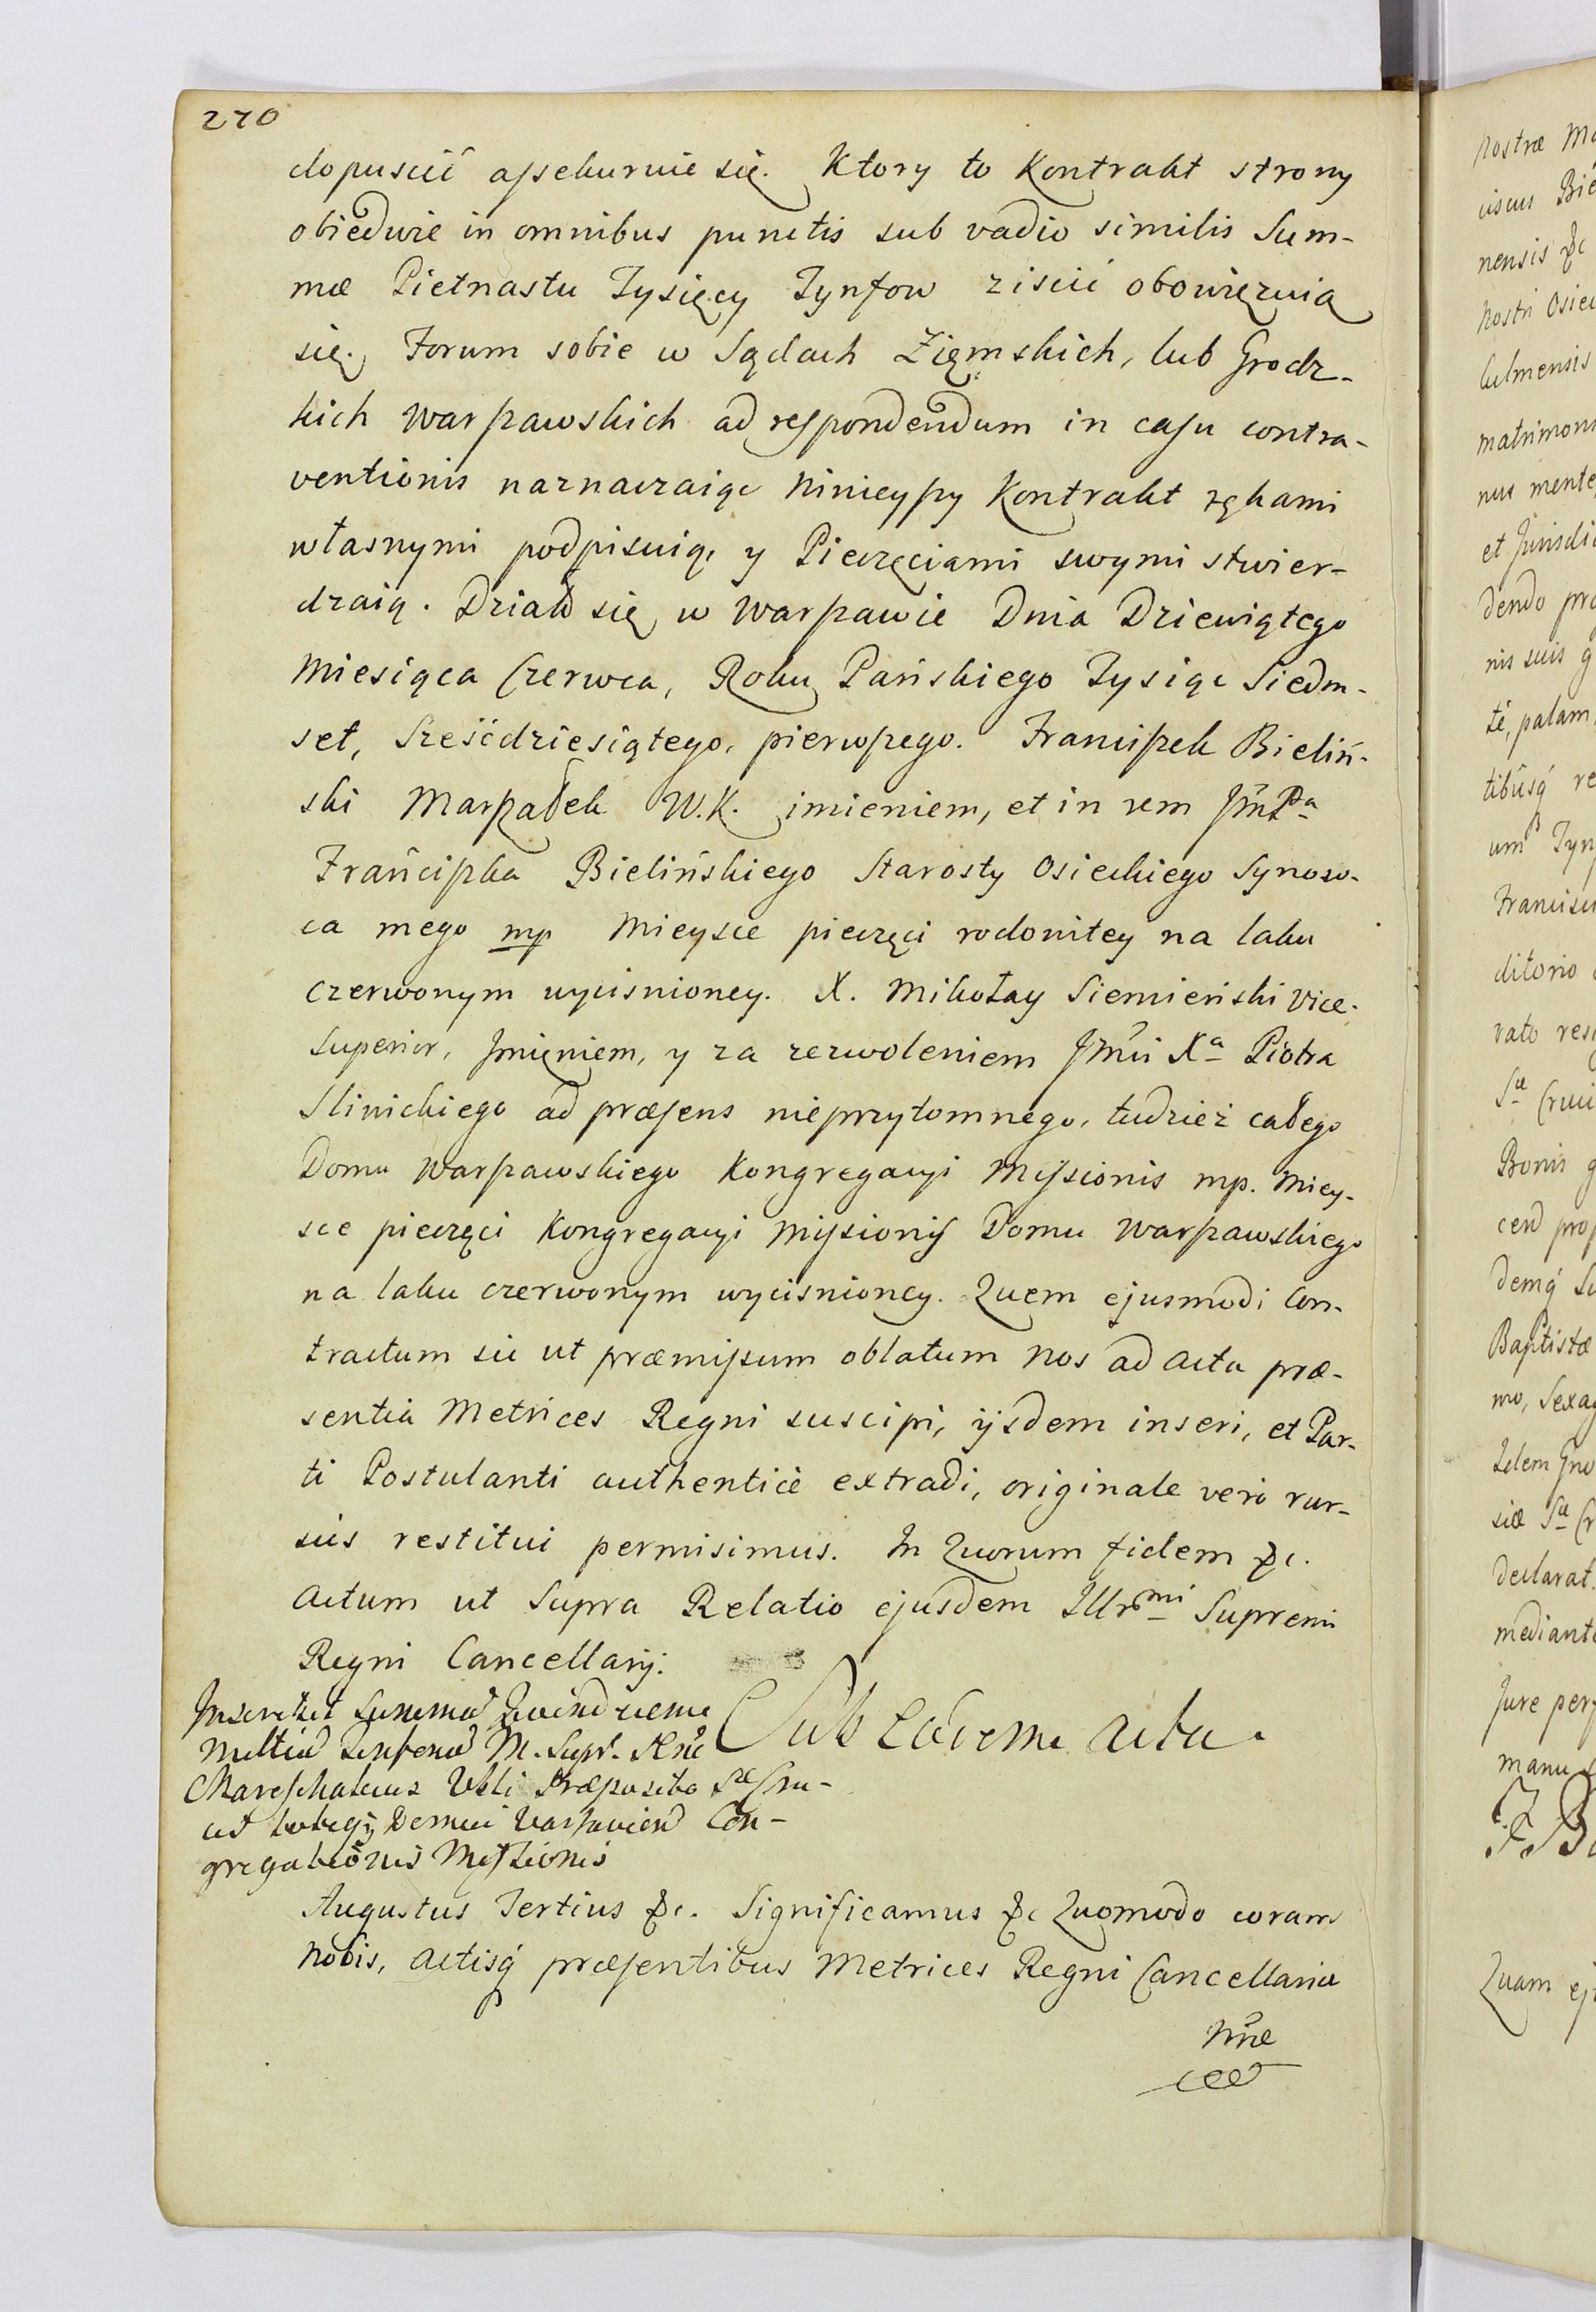 270
dopuscić assekuruie się. Ktory to Kontrakt strony
obiedwie in omnibus punctis sub vadio similis Sum-
mæ Pietnastu Tysięcy Tynfow ziscić obowięzuią
się. Forum sobie w Sądach Zięmskich, lub Grodz-
kich Warszawskich ad respondendum in casu contra-
ventionis naznaczaiąc ninieyszy Kontrakt rękami
własnymi podpisuią, y Pieczęciami swymi stwier-
dzaią. Działo się w Warszawie Dnia Dziewiątego
Miesiąca Czerwca, Roku Pańskiego Tysiąc Siedm-
set, Sześćdziesiątego, pierwszego. Franciszek Bieliń-
ski Marszałek W.K. imieniem, et in rem JmPa
Franciszka Bielińskiego Starosty Osieckiego Synow-
ca mego mp Mieysce pieczęci rodowitey na laku
czerwonym wycisnioney. X. Mikołay Siemieński Vice-
Superior, Jmięniem, y za zezwoleniem Jmći Xa Piotra
Sliwickiego ad præsens nieprzytomnego, tudzież całego
Domu Warszawskiego Kongregacyi Missionis mp. Miey-
sce pieczęci Kongregacyi Missionis Domu Warszawskiego
na laku czerwonym wycisnioney. Quem ejusmodi Con-
tractum sic ut præmissum oblatum Nos ad Acta præ-
sentia Metrices Regni suscipi, ijsdem inseri, et Par-
ti Postulanti authenticè extradi, originale verò rur-
sùs restitui permisimus. In Quorum fidem &c.
Actum ut Supra Relatio ejusdem Illrmi Supremi
Regni Cancellarij.
Sub Eadem Actu
Inscribit Summam
Millia M. Supr.
Mareschalcus Præposito Sæ Cru-
cis Domui Varsavien Con-
gregationis Missionis
Augustus Tertius &c. Significamus &c Quomodo coram
Nobis, Actisq præsentibus Metrices Regni Cancellariæ
Nræ